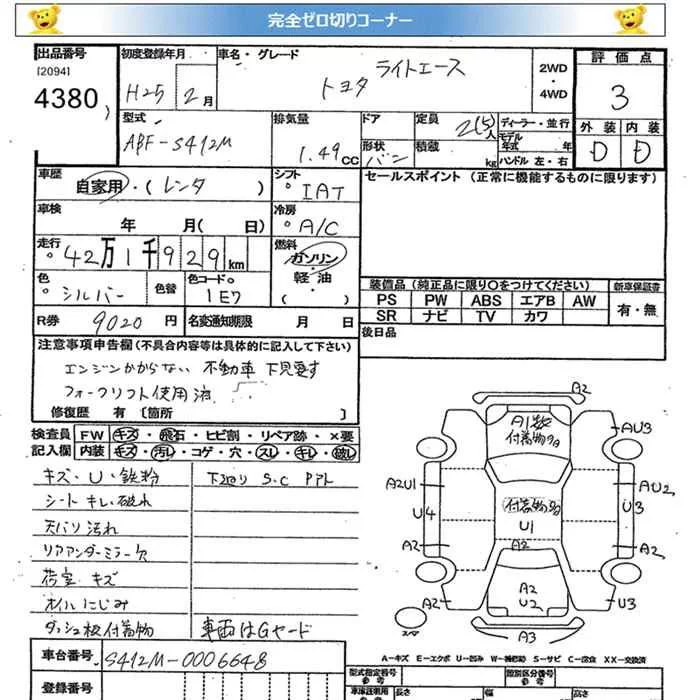 完全ゼロ切りコーナー
出品番号 初度登録年月 車名・グレード 評価点
[2094] ライトエース 2WD
4380 H25 2月 トヨタ ・ 4WD 3
型式 排気量 ドア 定員 ディーラー・並行 外装 内装
ABF-S412M 1.49cc 2(5)人 モデル年式 年 D D
形状 バン 積載 kg ハンドル 左・右
車歴 シフト セールスポイント (正常に機能するものに限ります)
自家用・(レンタ ) IAT
車検 冷房
年 月( 日) A/C
走行 燃料
42万1千929km ガソリン・軽油・( )
色 色替 色コードNo. 装備品(純正品に限り〇をつけてください) 新車保証書
シルバー 1E7 PS PW ABS エアB AW 有・無
SR ナビ TV カワ
R券 9020円 名変通知期限 月 日 後日品
注意事項申告欄(不具合内容等は具体的に記入して下さい)
エンジンかからない 不動車 下見要す
フォークリフト使用済
修復歴 有 [箇所 ]
検査員 FW キズ・飛石・ヒビ割・リペア跡・×要
記入欄 内装 キズ・汚レ・コゲ・穴・スレ・キレ・破レ
キズ・U・鉄粉 下廻り S.C Pアト
シート キレ・破れ
天バリ 汚れ
リアアンダーミラー欠
荷室 キズ
オイルにじみ
ダッシュ板付着物 車両はGヤード
A2
A1数 付着物有 AU3
A2U1 AU2
U4 付着物有 U3
U1
A2 A2 A2
A2 A2 U2 U3
スペア A3
A-キズ E-エクボ U-凹み W-補修跡 S-サビ C-腐食 XX-交換済
車台番号 S412M-0006648
型式指定番号 参考 類別区分番号 参考
登録番号 長さ 幅 高さ